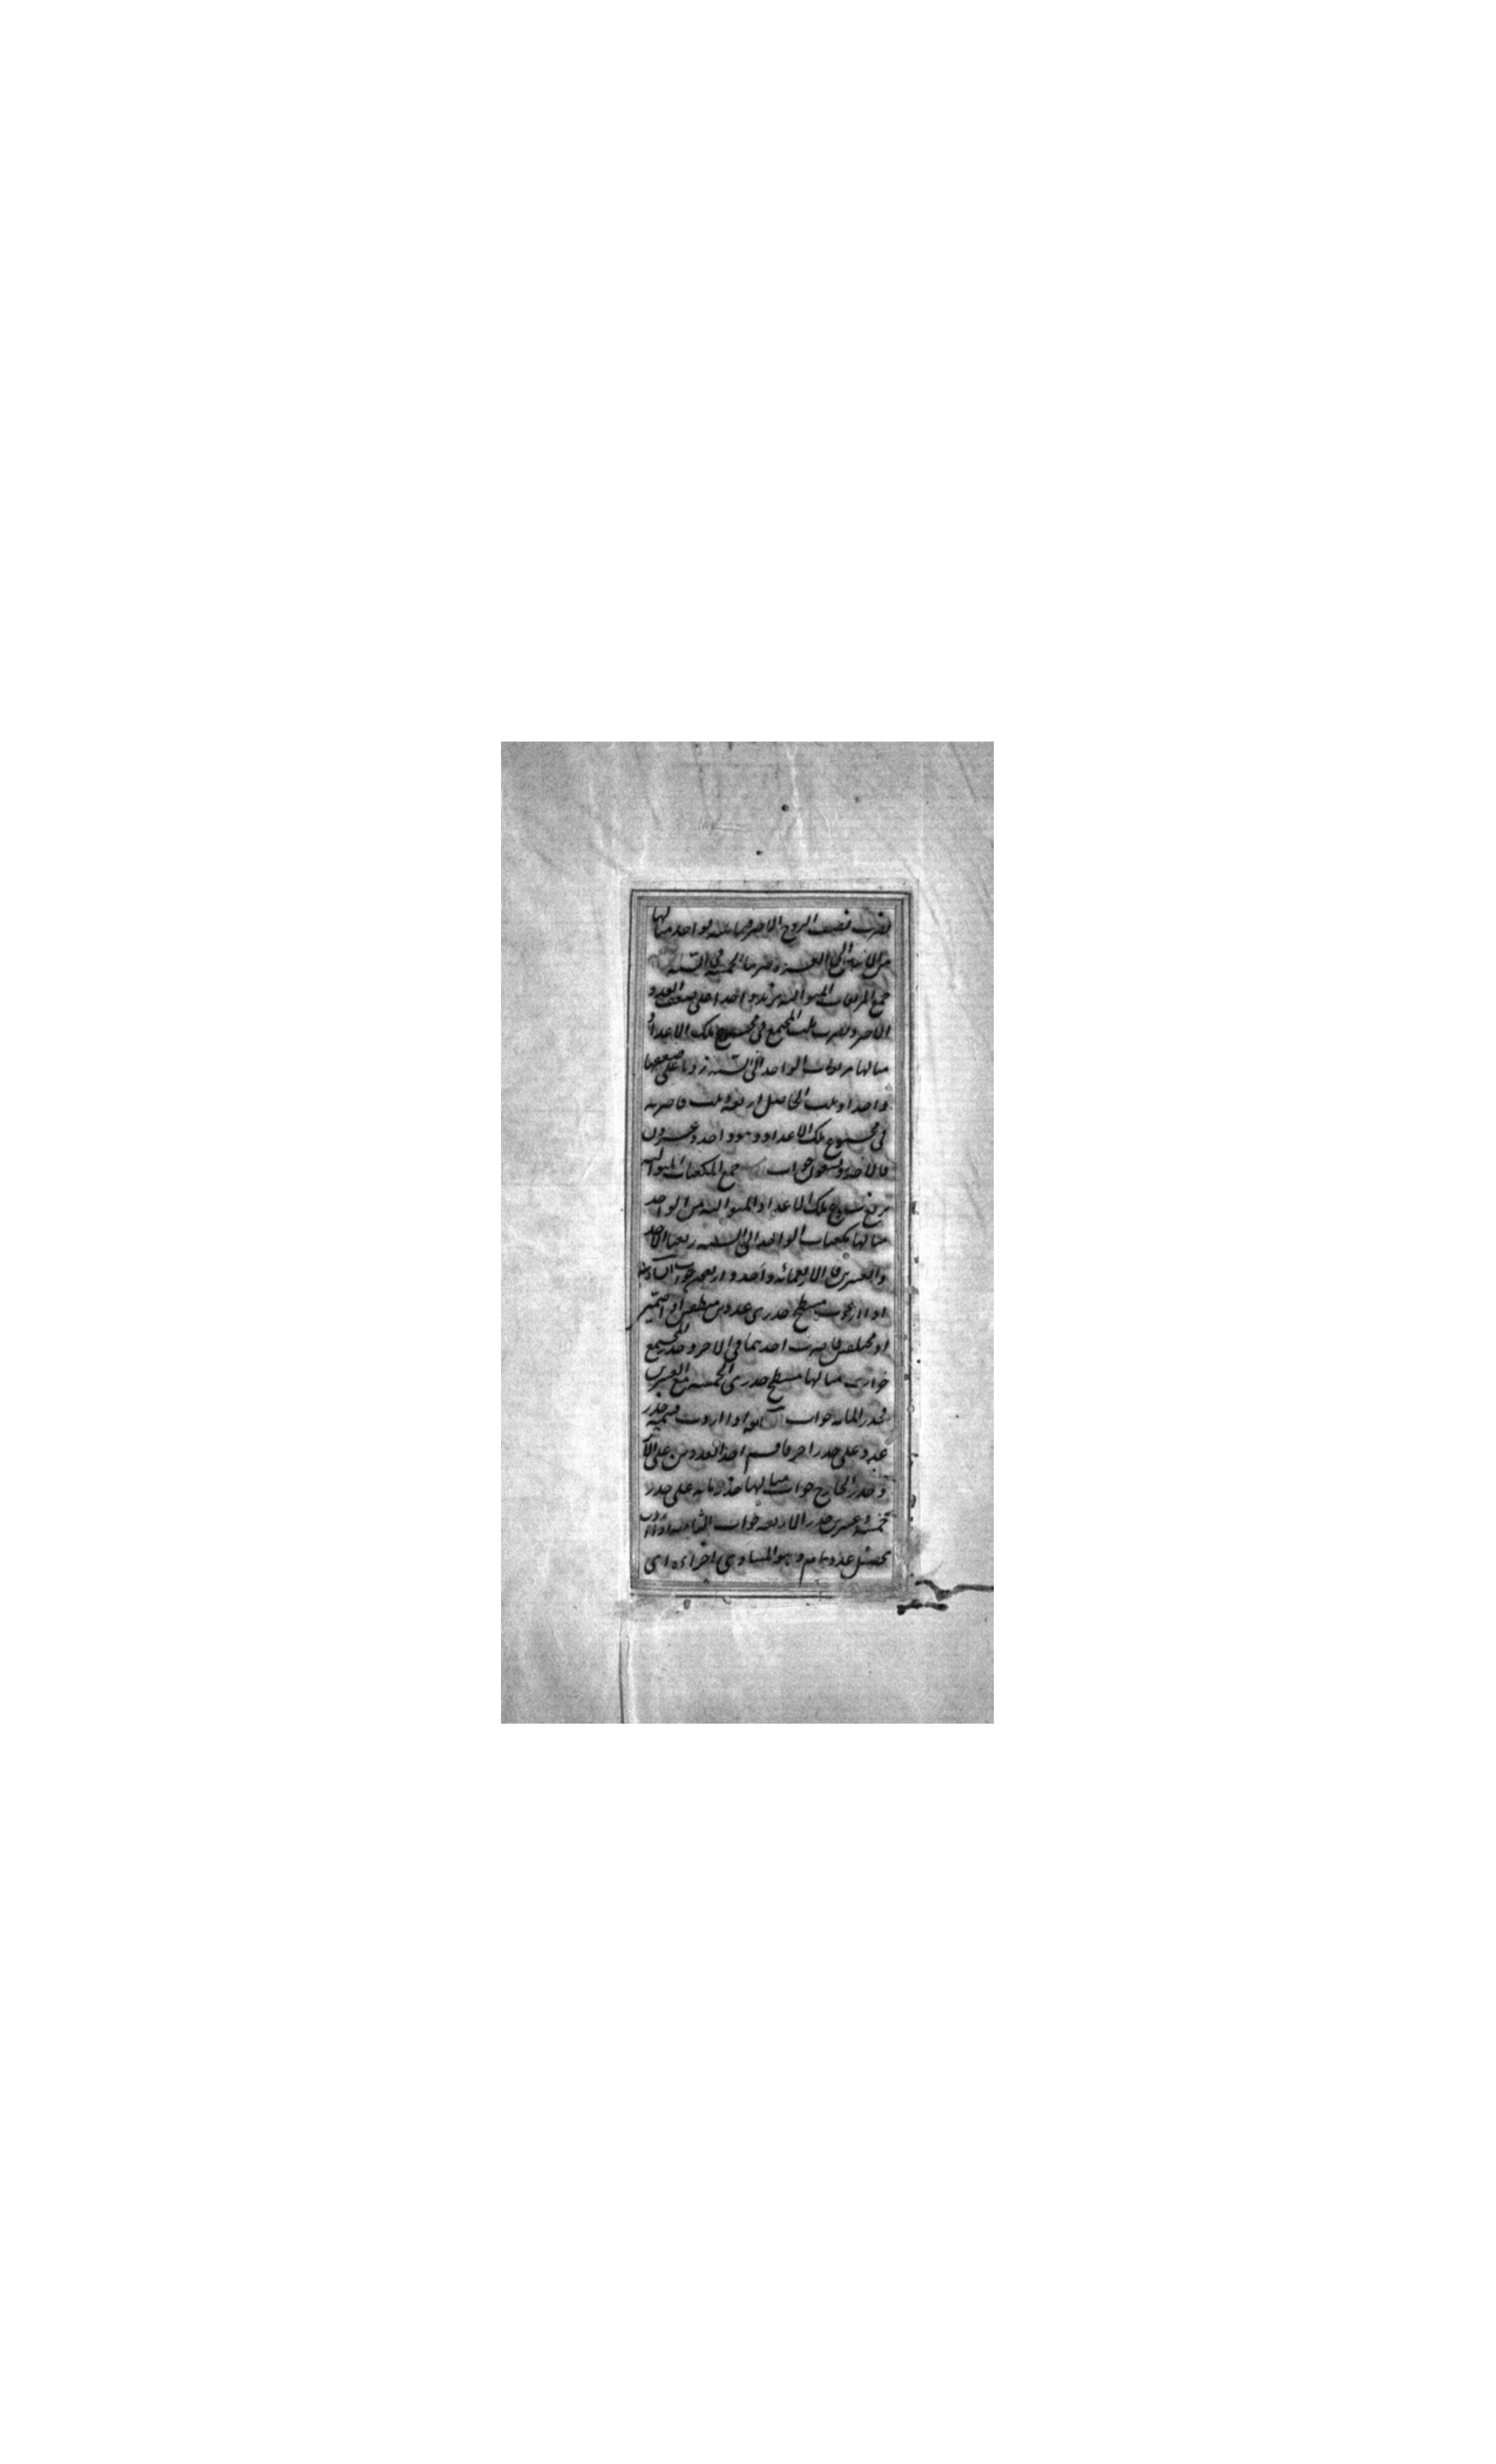 تضرب نصف الزوج الاخير فيما يليه بواحد مثالها
من الاثنين الى العشرة ضربنا الخمسة في الستة
جمع المربعات المتوالية تزيد واحدا على ضعف العدد
الاخير وتضرب ثلث المجتمع في مجموع تلك الاعداد
مثالها مربعات الواحد الى الستة زدنا على ضعفها
واحدا وثلث الحاصل اربعة وثلث فاضربه
في مجموع تلك الاعداد وهو واحد وعشرون
فالاحد وتسعون جواب جمع المكعبات المتوالية
تربع مجموع تلك الاعداد المتوالية من الواحد
مثالها مكعبات الواحد الى الستة ربعنا الاحد
والعشرين فالاربعمائة واحد واربعون جواب السادسة
اذا اردت مسطح جذري عددين منطقين او اصمين
او مختلفين فاضرب احدهما في الاخر وجذر المجتمع
جواب مثالها مسطح جذري الخمسة مع العشرين
فجذر المائة جواب السابعة اذا اردت قسمة جذر
عدد على جذر اخر فاقسم احد العددين على الاخر
وجذر الخارج جواب مثالها جذر مائة على جذر
خمسة وعشرين جذر الاربعة جواب الثامنة اذا اردت
تحصل عدد تام وهو المساوي اجزاءه اى